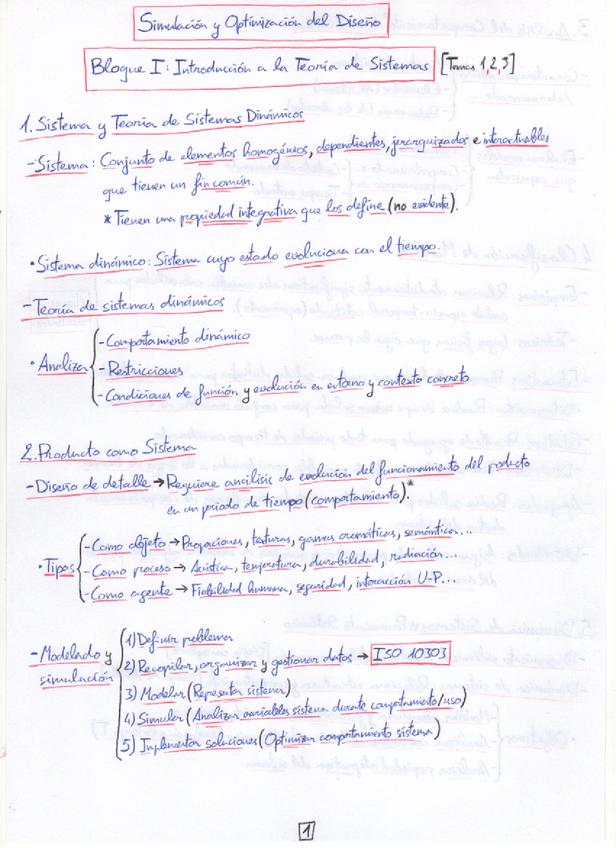 Simulación y Optimización del Diseño
Bloque I: Introducción a la Teoría de Sistemas [Temas 1,2,3]
1. Sistema y Teoría de Sistemas Dinámicos
- Sistema: Conjunto de elementos homogénios, dependientes, jerarquizados e interactuables
que tienen un fin común.
* Tienen una propiedad integrativa que los define (no evidente).
• Sistema dinámico: Sistema cuyo estado evoluciona con el tiempo.
- Teoría de sistemas dinámicos
• Analiza
- Comportamiento dinámico
- Restricciones
- Condiciones de función y evolución en entorno y contexto concreto
2. Producto como Sistema
- Diseño de detalle → Requiere análisis de evolución del funcionamiento del producto
en un periodo de tiempo (comportamiento).*
• Tipos
- Como objeto → Proporciones, texturas, gamas cromáticas, semántica...
- Como proceso → Acústica, temperatura, durabilidad, radiación...
- Como agente → Fiabilidad humana, seguridad, interacción U-P...
- Modelado y simulación
1) Definir problema
2) Recopilar, organizar y gestionar datos → ISO 10303
3) Modelar (Representar sistema)
4) Simular (Analizar variables sistema durante comportamiento/uso)
5) Implementar soluciones (Optimizar comportamiento sistema)
1